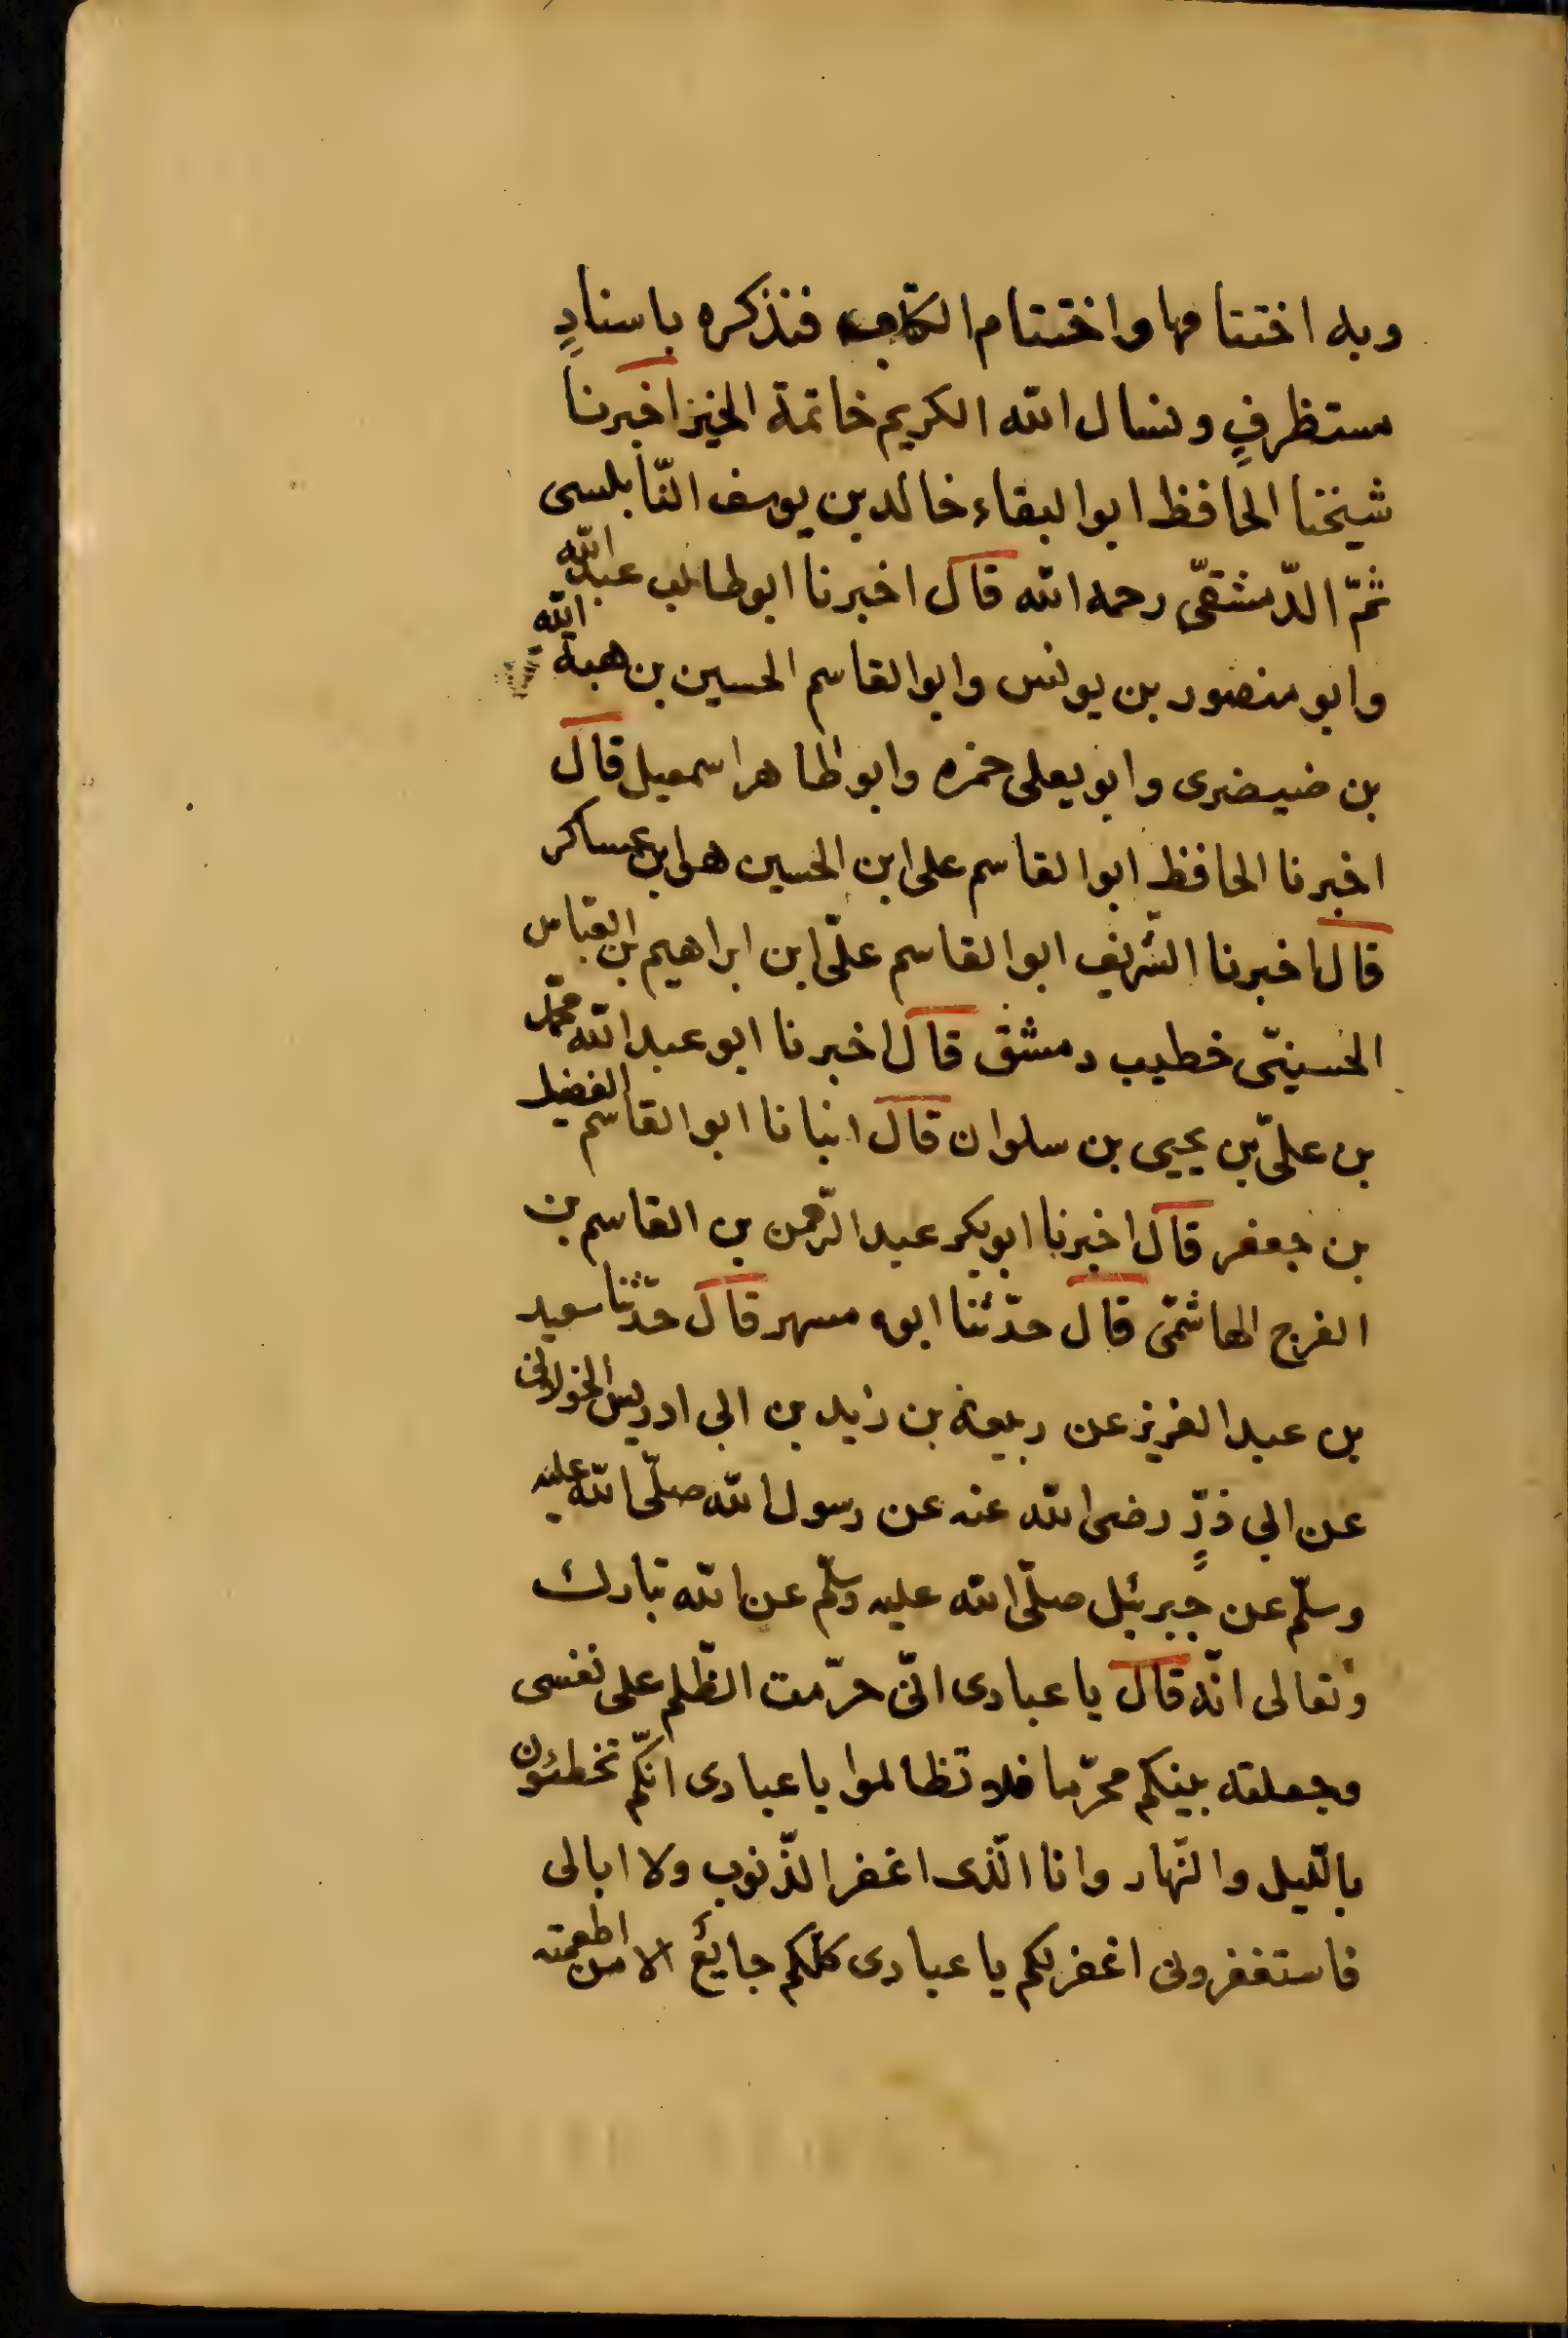 وبه اختتامها واختتام الكتاب فنذكره باسنادٍ
مستظرفٍ ونسال الله الكريم خاتمة الخير اخبرنا
شيخنا الحافظ ابوالبقاء خالد بن يوسف النّابلسى
ثمّ الدّمشقىّ رحمه الله قال اخبرنا ابوطالب عبدالله
وابو منصور بن يونس وابوالقاسم الحسين بن هبة الله
بن ضيضرى وابو يعلى حمزه وابوالطاهر اسمعيل قال
اخبرنا الحافظ ابوالقاسم على ابن الحسين هو ابن عساكر
قال اخبرنا الشّريف ابوالقاسم علىّ ابن ابراهيم بن العبّاس
الحسينىّ خطيب دمشق قال اخبرنا ابو عبدالله محمّد
بن علىّ بن يحيى بن سلوان قال انبانا ابوالقاسم الفضيل
بن جعفر قال اخبرنا ابوبكر عبدالرّحمن بن القاسم بن
الفرج الهاشمّى قال حدّثنا ابوه مسهر قال حدّثنا سعيد
بن عبدالعزيز عن ربيعة بن زيد بن ابى ادريس الخولانى
عن ابى ذرٍّ رضى الله عنه عن رسول الله صلّى الله عليه
وسلّم عن جبرئيل صلّى الله عليه وسلّم عن الله تبارك
وتعالى انّه قال يا عبادى انّى حرّمت الظّلم على نفسى
وجعلته بينكم محرّما فلا تظالموا يا عبادى انّكم تخطئون
باللّيل والنّهار وانا الّذى اغفر الذّنوب ولا ابالى
فاستغفرونى اغفرلكم يا عبادى كلّكم جايع الا من اطعمته